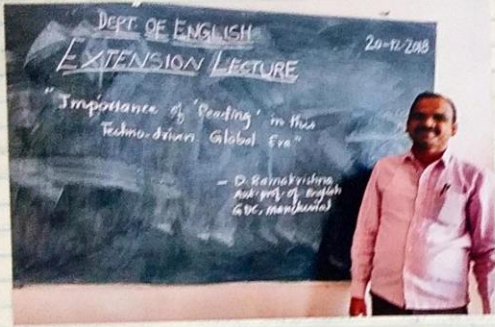 DEPT OF ENGLISH
20-12-2018
EXTENSION LECTURE
"Importance of 'Reading' in this
Techno-driven Global Era"
- D. Ramakrishna
Asst. prof. of English
GDC, Mancherial